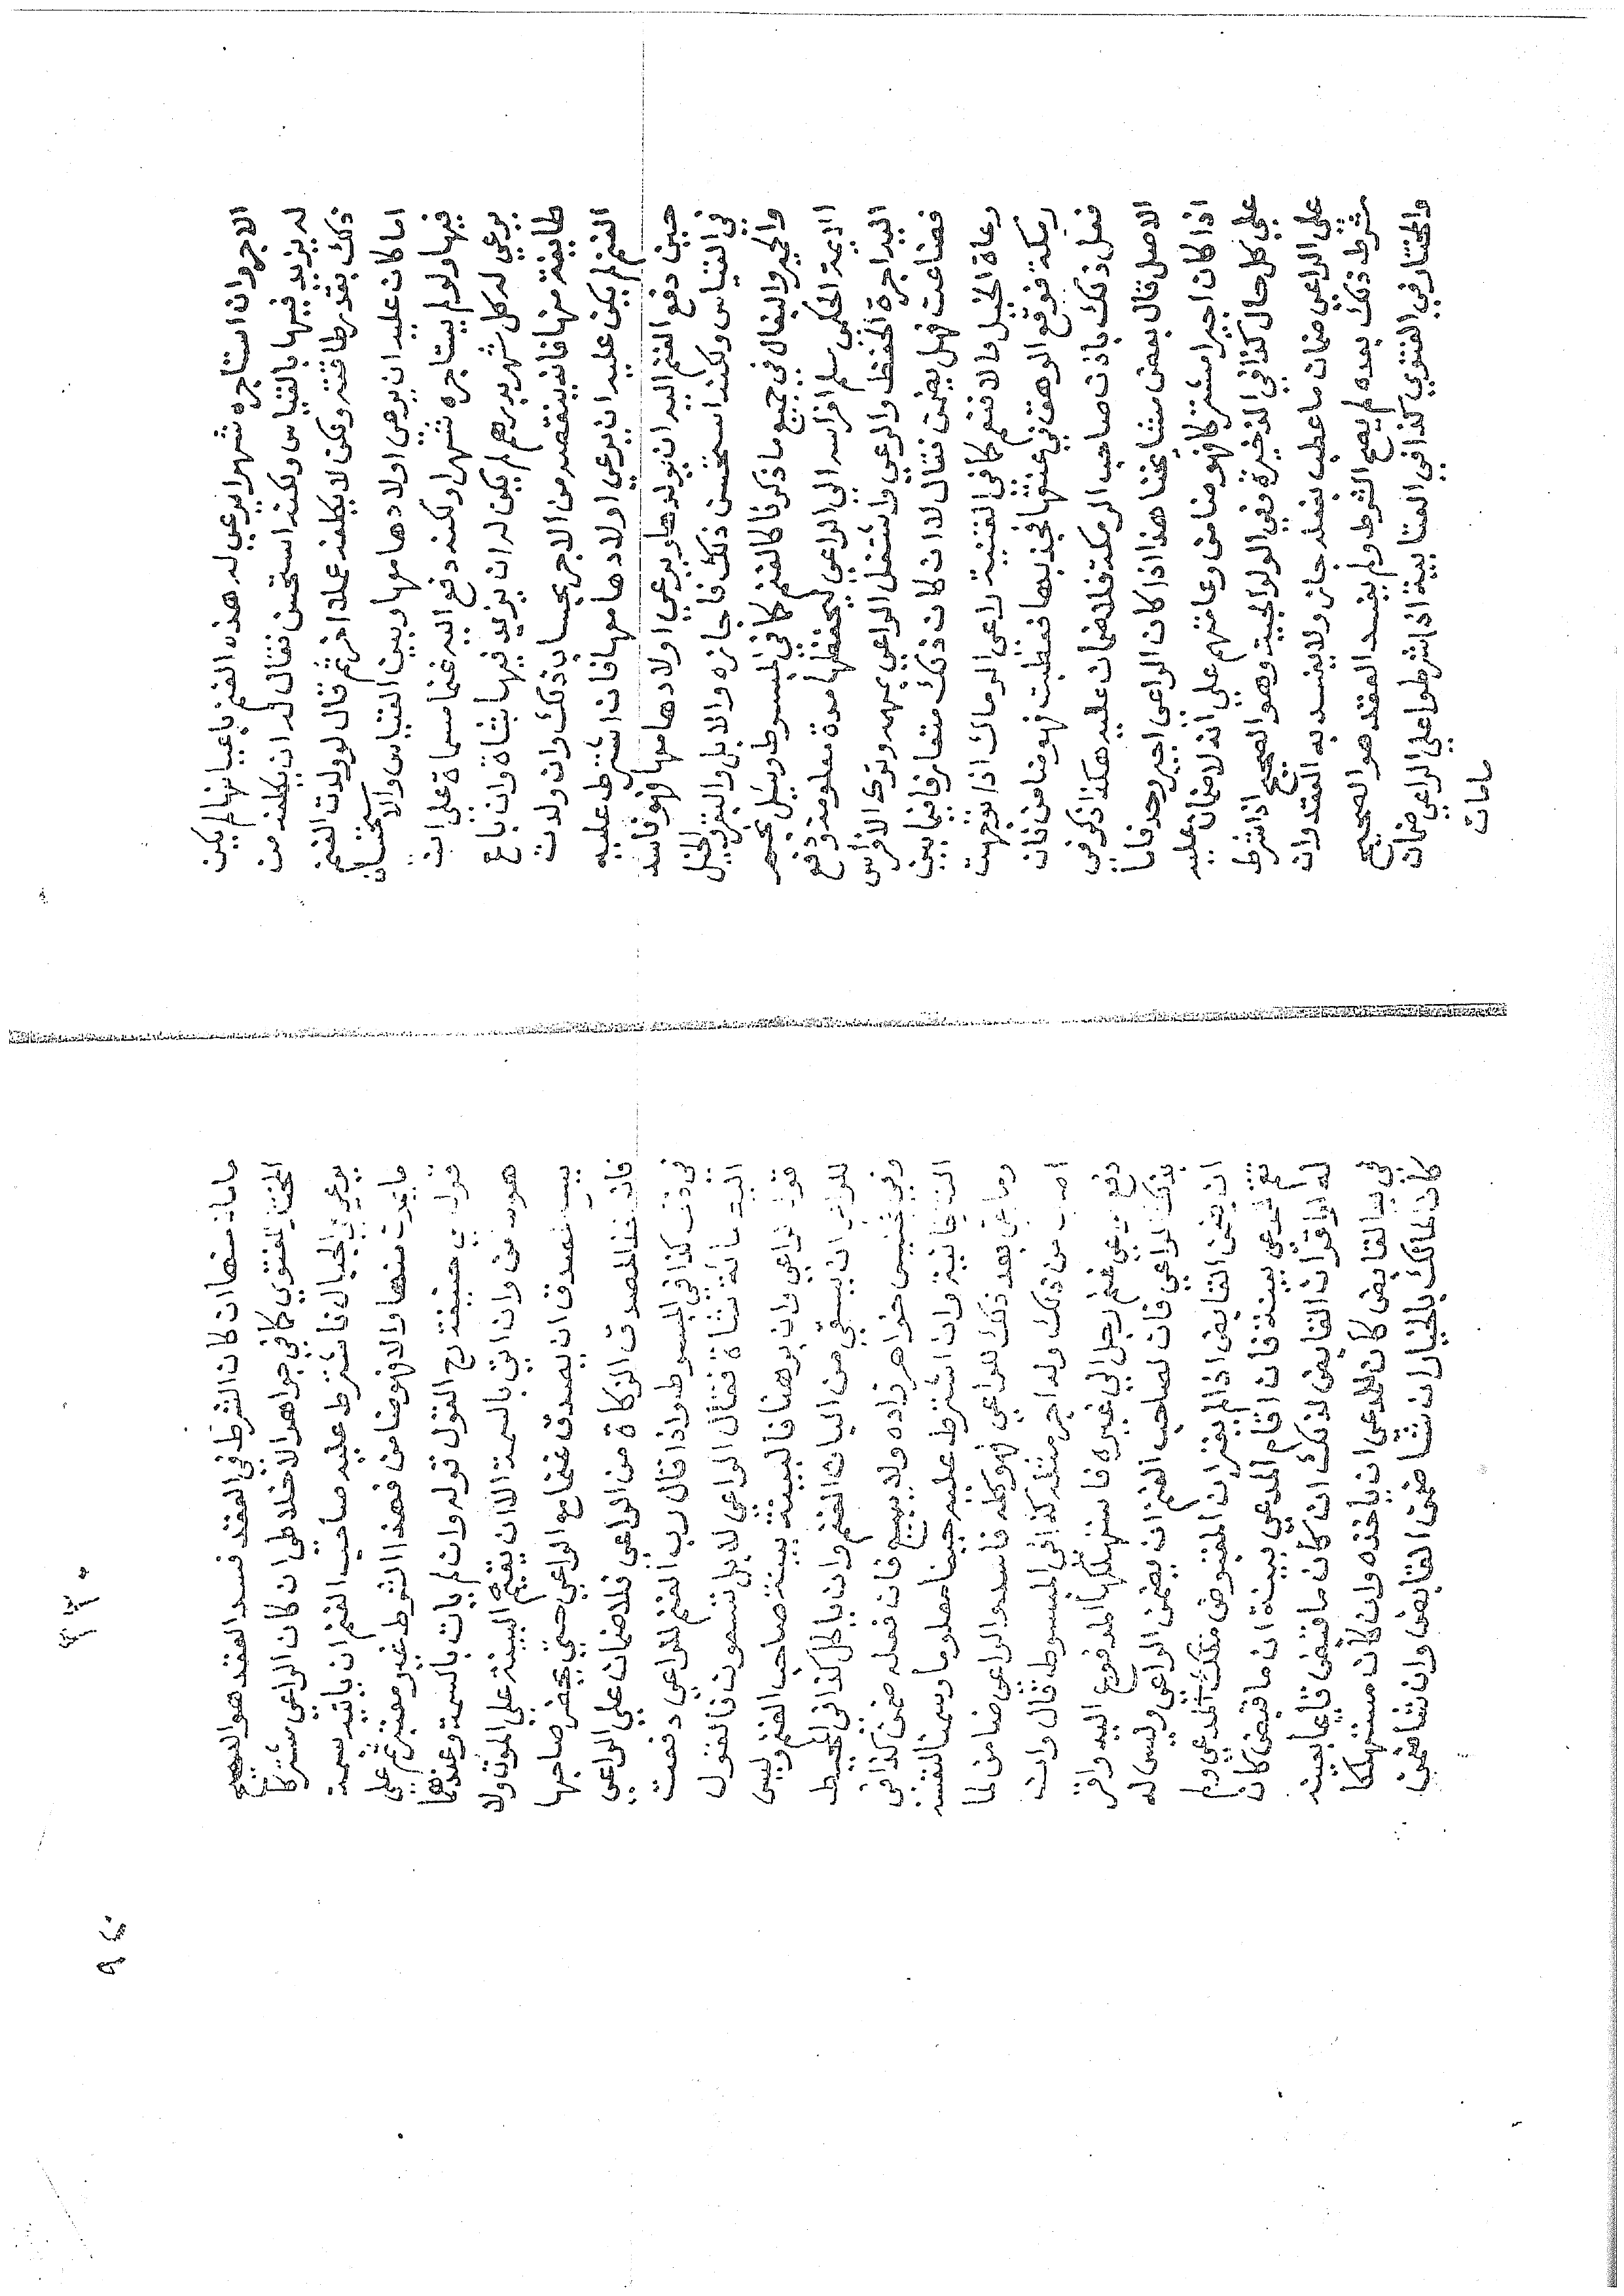 الاجر وان استاجره شهرا يرعي له هذه الغنم باعيانها لم يكن
له يزيد فيها بالقياس ولكنه استحسن فقال له ان يكلفه من
ذلك بقدر طاقته ولكن لا يكلفه عملا اخر ثم قال لو ولدت الغنم
اما كان عليه ان يرعى اولادها معها وبين القياس والاستحسان
فيها ولو لم يستاجره شهرا ولكنه دفع اليه غنما مسماة على ان
يرعي له كل شهر بدرهم لم يكن له ان يزيد فيها شاة وان باع
طايفة منها فانه ينقصه من الاجر بحساب ذلك وان ولدت
الغنم لم يكن عليه ان يرعي اولادها معها فان اشترط عليه
حين دفع الغنم اليه ان يولدها ويرعي اولادها معها فهو فاسد
في القياس ولكنه استحسن ذلك فاجازه والابل والبقر والخيل
والحمير والبغال في جميع ما ذكرنا كالغنم كما في المبسوط وسئل نجم
الايمة الحكمي سلم افراسه الي الراعي ليحفظها مدة معلومة ودفع
اليه اجرة الحفظ والرعي واشتغل الراعي بمهمه وترك الافراس
فضاعت فهل يضمن فقال لا ان كان ذلك متعارفا فيما بين
رعاة الخيل والا فنعم كما في القنية راعي الرماك اذا توجهت
رمكة فوقع الوهق في عنقها فجذبها فعطبت فهو ضامن فان
فعل ذلك باذن صاحب الرمكة فلا ضمان عليه هكذا ذكر في
الاصل قال بعض مشايخنا هذا اذا كان الراعي اجير وحد فاما
اذا كان اجيرا مشتركا فهو ضامن وعامتهم علي انه لا ضمان عليه
علي كل حال كذا في الذخيرة وفي الولوالجية وهو الصحيح اذا شرط
على الراعي ضمان ما عطب بفعله جائز ولا يفسد به العقد وان
شرط ذلك بعده لم يصح الشرط ولم يفسد العقد هو الصحيح
والمختار في الفتوي كذا في العتابية اذا شرطوا علي الراعي ضمان
ما مات
ما مات منها ان كان الشرط في العقد فسد العقد هو الصحيح
المختار للفتوي كما في جواهر الاخلاطي ان كان الراعي مشتركا
يرعي في الجبال فاشترط عليه صاحب الغنم ان ياتيه بسمة
ما يموت منها والا فهو ضامن فهذا الشرط غير معتبر ثم على
قول ابي حنيفة رح القول قوله وان لم يات بالسمة وعندهما
هو ضامن وان اتى بالسمة الا ان يقيم البينة علي الموت ولا
يسع المصدق ان يصدق غنما مع الراعي حتى يحضر صاحبها
فان اخذ المصدق الزكاة من الراعي فلا ضمان علي الراعي
في ذلك كذا في المبسوط واذا قال رب الغنم للراعي دفعت
اليك مائة شاة فقال الراعي لا بل تسعون فالقول
قول الراعي وان برهنا فالبينة بينة صاحب الغنم وليس
للراعي ان يسقي من البان الغنم وان ياكل كذا في المحيط
وفي تجنيس خواهر زاده ولا يبيع فان فعله ضمن كذا في
التتارخانية وان اشترط عليه جبنا معلوما وسمنا لنفسه
وما بقي بعد ذلك للراعي فهو كله فاسد والراعي ضامن لما
اصاب من ذلك وله اجر مثله كذا في المبسوط قال وان
دفع راعي غنم رجل الي غيره فاستهلكها المدفوع اليه واقر
بذلك الراعي فان لصاحب الغنم ان يضمن الراعي وليس له
ان يضمن القابض اذا لم يقر ان المقبوض ملك المدعي ولم
يقم المدعي بينة فان اقام المدعي بينة ان ما قبض كان
له او اقر ان القابض لذلك ان كان ما قبض قايما بعينه
في يد القابض كان للمدعي ان ياخذه وان كان مستهلكا
كان المالك بالخيار ان شا ضمن القابض وان شا ضمن